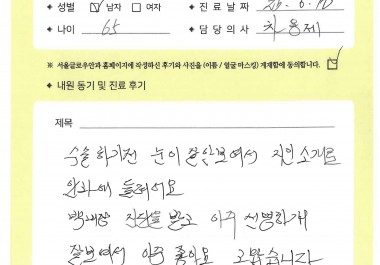 ✦ 성별 ☑ 남자 □ 여자 ✦ 진료 날짜
✦ 나이 65 ✦ 담당의사 차용제
※ 서울글로우안과 홈페이지에 작성하신 후기와 사진을 (이름 / 얼굴 마스킹) 게재함에 동의합니다. ☑
✦ 내원 동기 및 진료 후기
제목
수술하기전 눈이 잘안보여서 지인소개로
안과에 들려어요
백내장 진단을 받고 아주 선명하게
잘보여서 아주 좋아요 고맙습니다